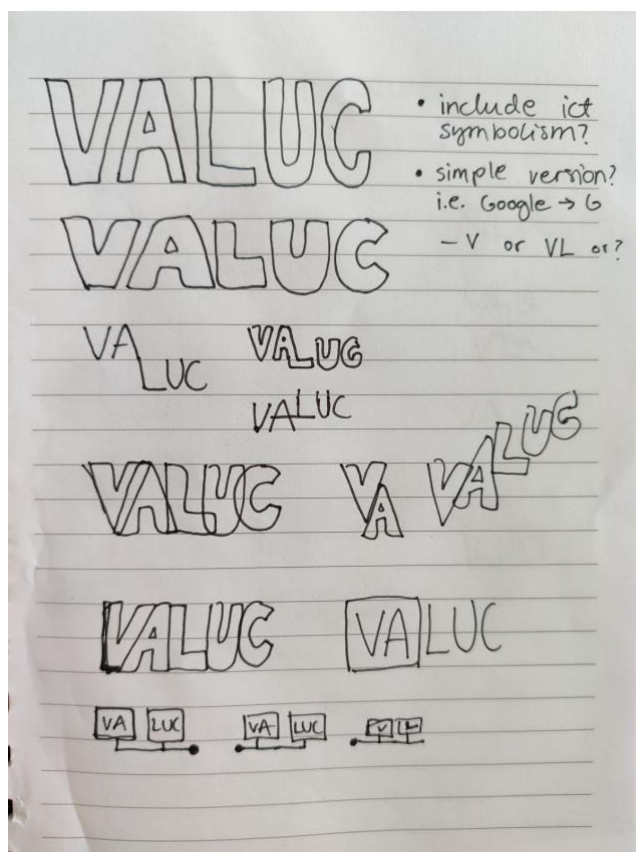 VALUC
• include ict
symbolism?
• simple version?
i.e. Google → G
– V or VL or?
VALUC
VA
LUC
VALUC
VALUC
VALUC
VA
VALUC
VALUC
VALUC
VA LUC
VA LUC
V L